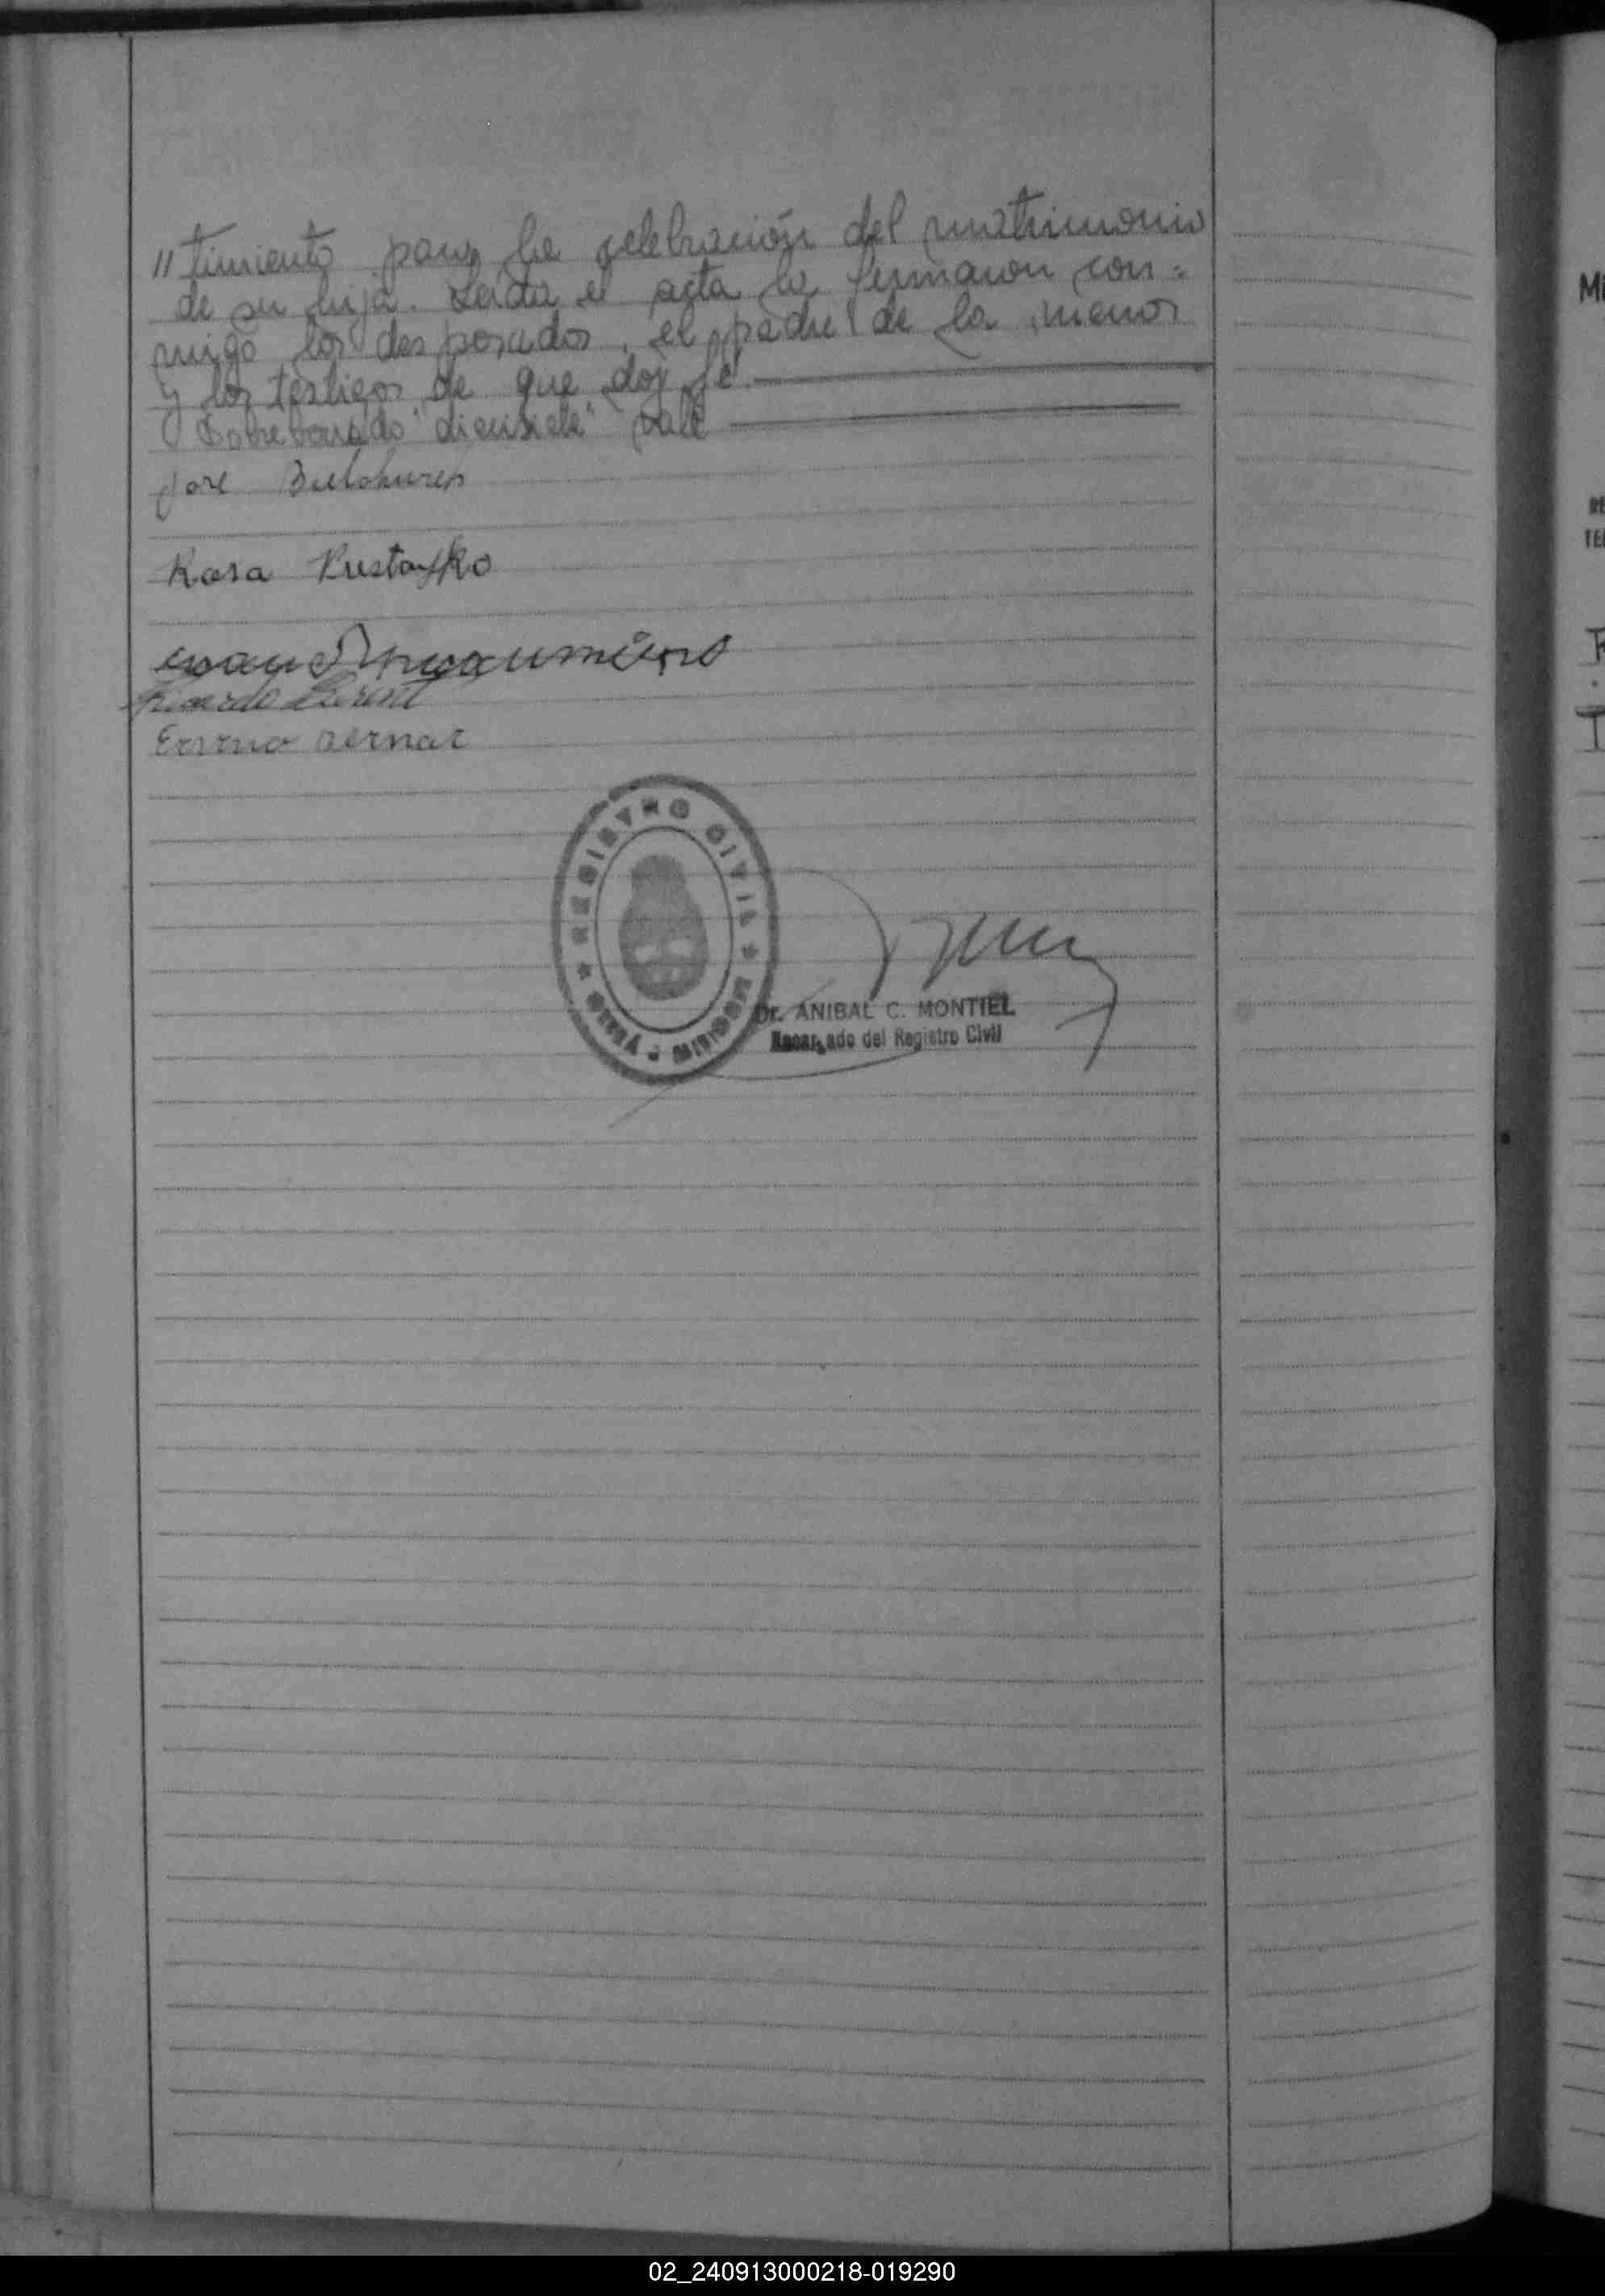 "timiento para la celebración del matrimonio
de su hija. Leída el acta la firmaron con=
migo los desposados, el padre de la menor
y los testigos de que doy fé.
Sobreborrado "diecisiete" vale
José
Rosa
Ricardo
REGISTRO CIVIL
OBERÁ - MISIONES
Dr. ANIBAL C. MONTIEL
Encargado del Registro Civil
02_240913000218-019290